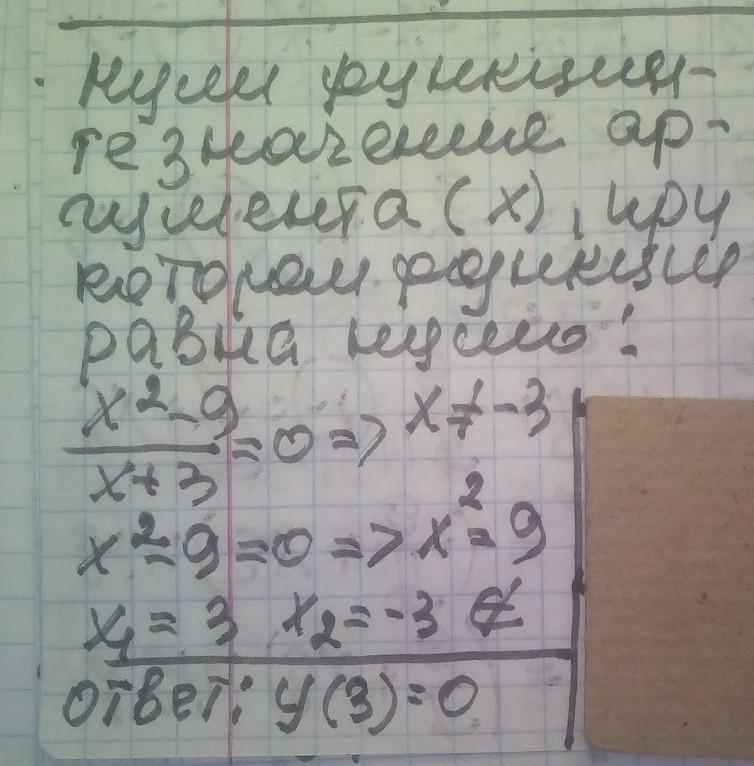 Нули функции-
те значение ар-
гумента (х), при
котором функция
равна нулю:
x²-9/x+3 = 0 => x ≠ -3
x²-9=0 => x²=9
x₁ = 3 x₂ = -3 ∉
ответ: y(3)=0